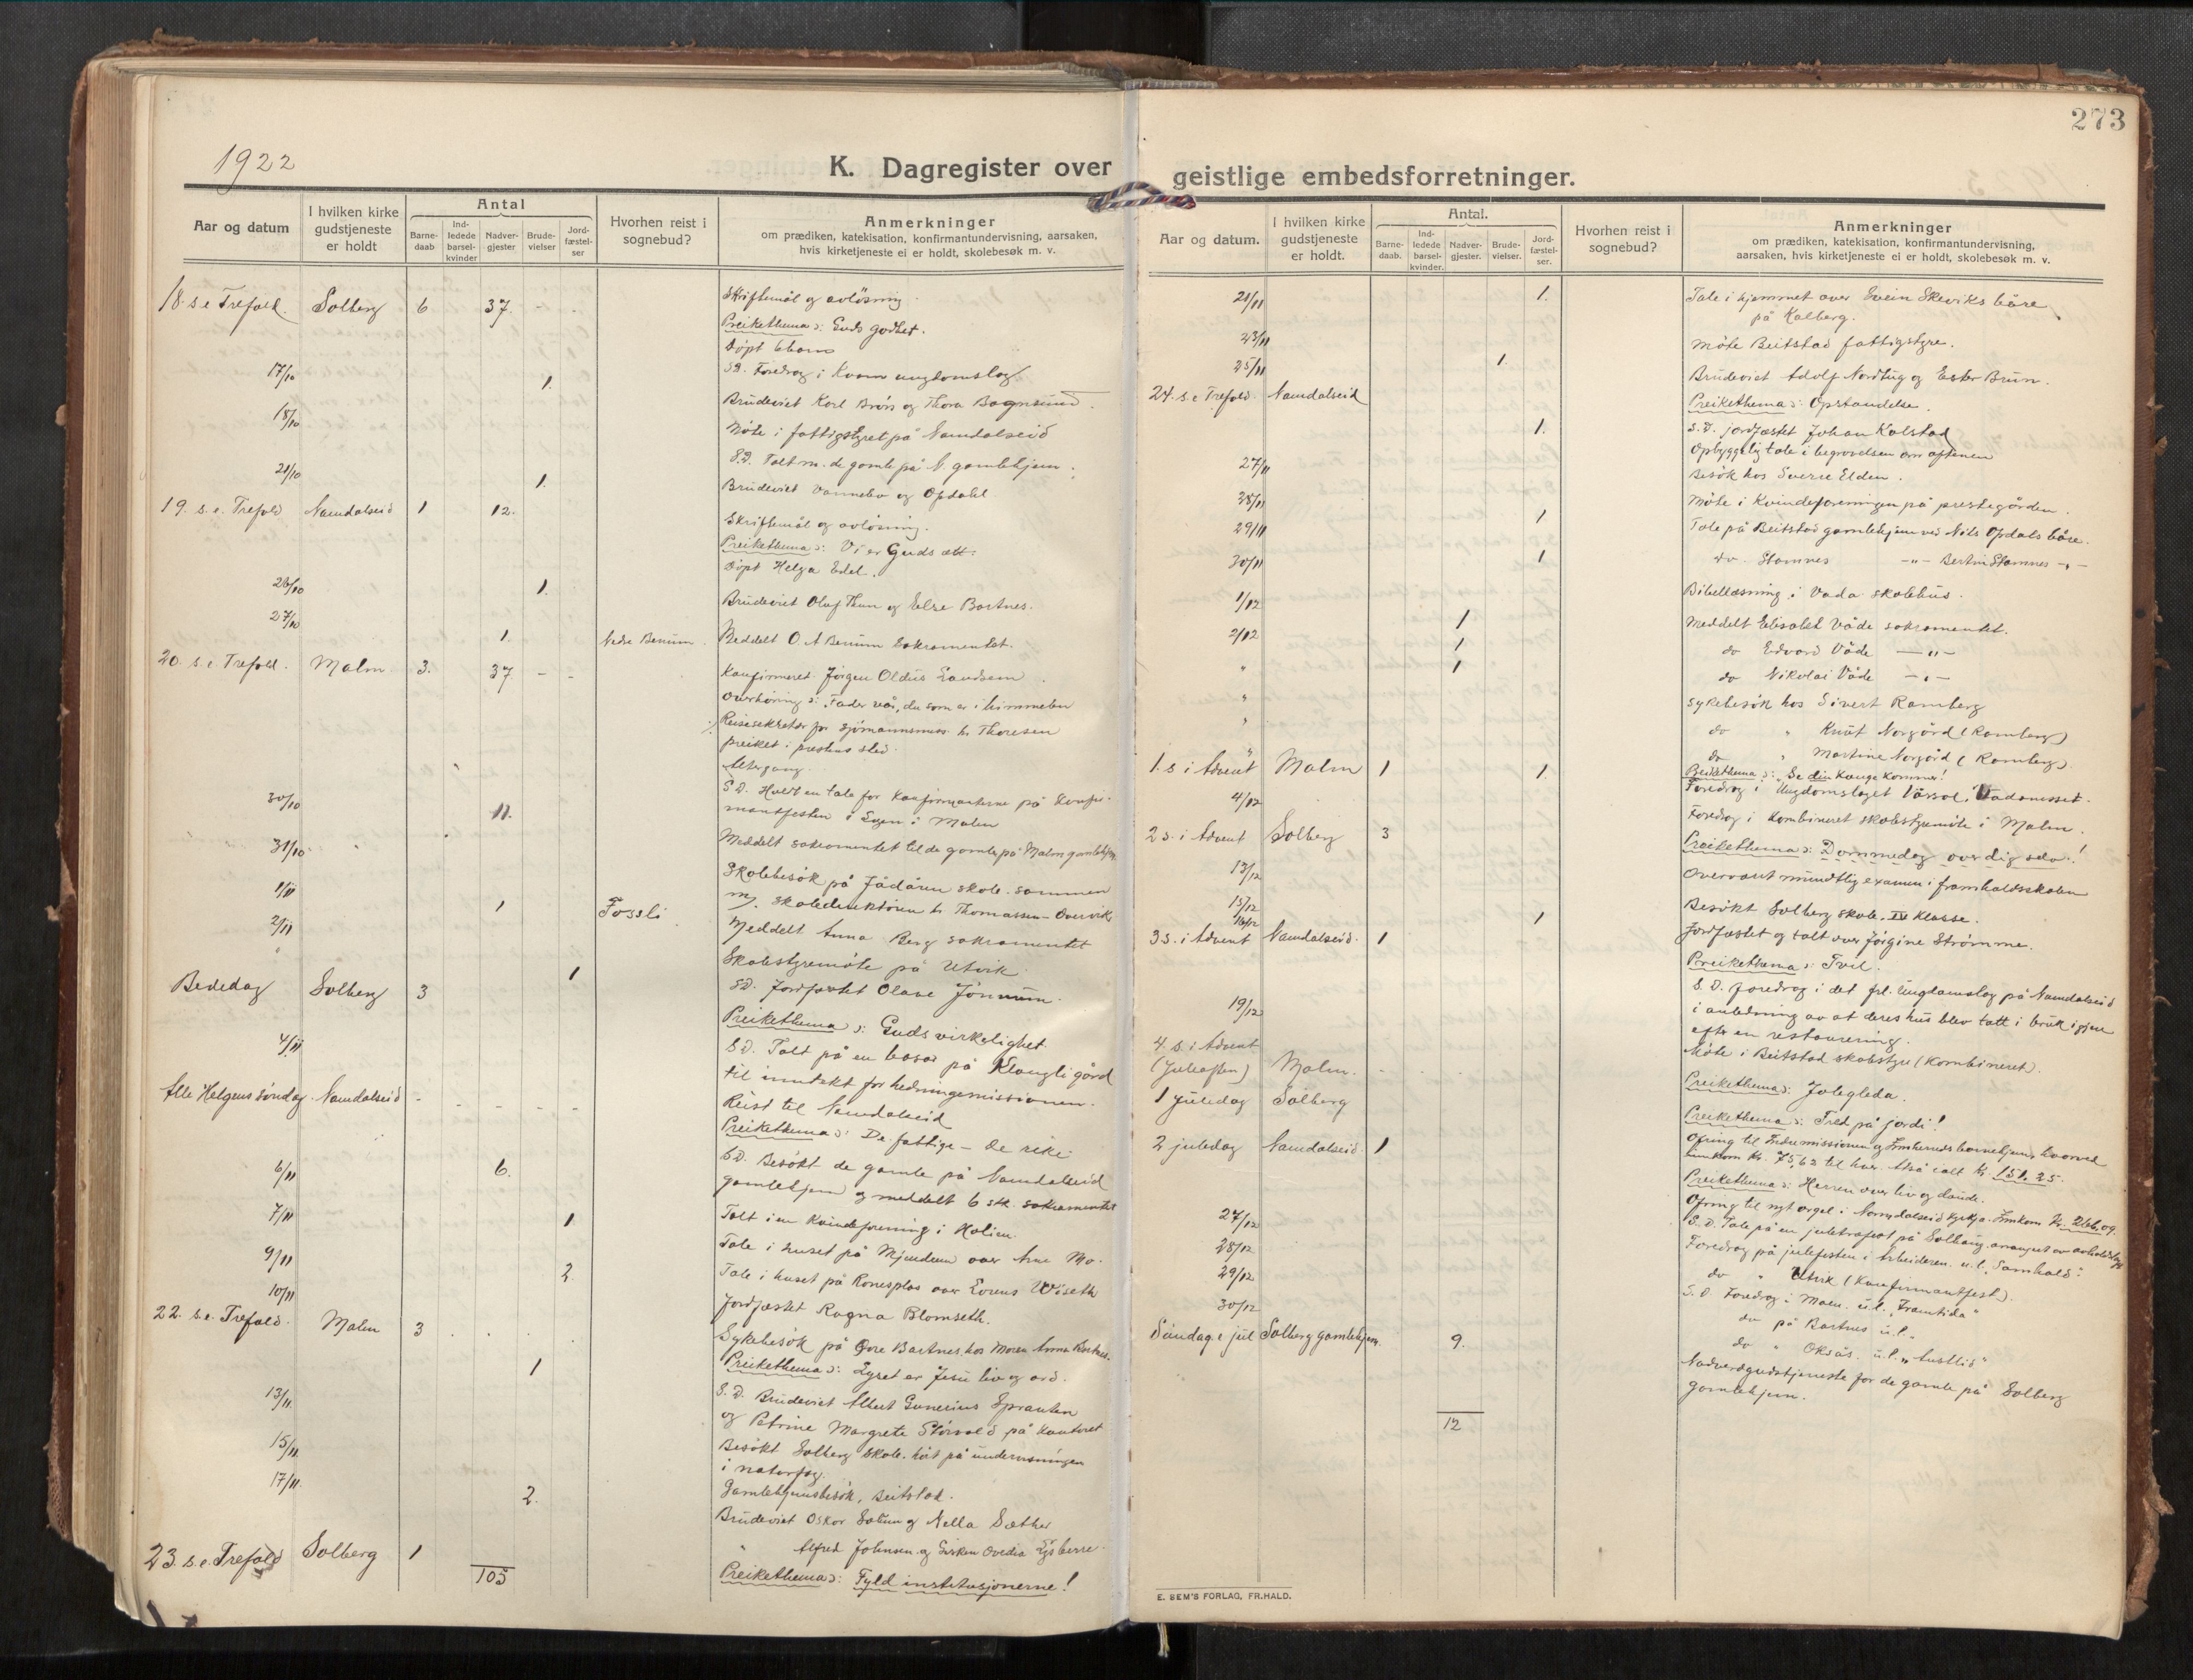 273
1922
K. Dagregister over geistlige embedsforretninger.
Aar og datum
I hvilken kirke gudstjeneste er holdt
Antal
Barne-daab
Ind-ledede barsel-kvinder
Nadver-gjester
Brude-vielser
Jord-fæstel-ser
Hvorhen reist i sognebud?
Anmerkninger
om prædiken, katekisation, konfirmantundervisning, aarsaken,
hvis kirketjeneste ei er holdt, skolebesøk m. v.
18. s e Trefold. Solberg 6 37. - - Skriftemål og avlösning.
Preikethema: Guds godhet.
Döpt 6 barn
S.D. Foredrag i Kvam ungdomslag
17/10 1. Brudeviet Karl Brörs og Thora Bagnsund.
18/10 Möte i fattigstyret på Namdalseid
S.D. Talt m. de gamle på N. gamlehjem.
21/10 1. Brudeviet Vannebo og Opdahl
19. s. e. Trefold Namdalseid 1 12. Skriftemål og avlösning.
Preikethema: Vi er Guds ætt.
Döpt Helga Edel.
26/10 1. Brudeviet Oluf Thun og Else Bartnes.
27/10 1. Nedre Benum. Meddelt O. A Benum sakramentet.
20. s. e Trefold. Malm 3. 37 - - Konfirmeret Jörgen Oldus Landsem
Overhöring: Fader vår, du som er i himmelen
Reisesekretær for sjömannsmis. hr Thoresen
preiket i prestens sted.
Altergang.
S.D. Holdt en tale for konfirmanterne på konfir-
mantfesten i Egen i Malm
30/10 11. Meddelt sakramentet til de gamle på Malm gamlehjem
31/10 Skolebesök på Jådåren skole sammen
m. skoledirektören hr Thomassen - Overvik
1/11 1 Fossli Meddelt Anna Berg sakramentet
2/11 Skolestyremöte på Utvik
" 1 S.D. Jordfæstet Olave Jörnum.
Bededag Solberg 3 Preikethema: Guds virkelighet.
S.D. Talt på en basar på Klængli gård
til inntekt for hedningemissionen.
4/11 Reist til Namdalseid
Alle Helgens söndag. Namdalseid - - - - - Preikethema: De fattige - de rike
S.D. Besökt de gamle på Namdalseid
gamlehjem og meddelt 6 stk. sakramentet
6/11 6. Talt i en kvindeforening i Holien.
7/11 1 Tale i huset på Mjøndem over Arne Mo.
9/11 2. Tale i huset på Ronesplas over Lorens Wiseth
Jordfæstet Ragna Blomseth.
10/11 Sykebesök på Gore Bartnes hos Moren Anna Bartnes.
22. s. e. Trefold. Malm 3 Preikethema: Lyset er Jesu liv og ord.
1 S.D. Brudeviet Albert Gunerius Sprauten
og Petrine Margrete Störvold på kontoret
13/11. Besökt Solberg skole. hört på undervisningen
i naturfag.
15/11. Gamlehjemsbesök, Beitstad.
17/11. 2. Brudeviet Oskar Solum og Nella Sæther
" Alfred Johnsen og Lisken Ovedia
23. s. e. Trefold Solberg 1 Preikethema: Fyld institusjonerne!
105
Aar og datum.
I hvilken kirke gudstjeneste er holdt.
Antal.
Barne-daab.
Ind-ledede barsel-kvinder.
Nadver-gjester.
Brude-vielser.
Jord-fæstel-ser.
Hvorhen reist i sognebud?
Anmerkninger
om prædiken, katekisation, konfirmantundervisning,
aarsaken, hvis kirketjeneste ei er holdt, skolebesøk m. v.
21/11 1. Tale i hjemmet over Svein Skeviks båre
på Kalberg.
23/11 Möte Beitstad fattigstyre.
25/11 1. Brudeviet Adolf Nordtug og Ester Brun.
24. s. e Trefold. Namdalseid Preikethema: Opstandelse.
1. S.D. jordfæstet Johan Kalstad
Opbyggelig tale i begravelsen om aftenen
27/11 Besök hos Sverre Elden.
28/11 Möte i Kvindeforeningen på prestegården.
29/11 1 Tale på Beitstad gamlehjem ved Nils Opdals båre.
30/11 1 do. Stamnes -"- Bertin Stamnes -"-
1/12 Bibellæsning i Vada skolehus.
2/12 1 Meddelt Elisabet Våde sakramentet.
1 do Edvard Våde -"-
" 1 do Nikolai Våde -"-
" Sykebesök hos Sivert Ramberg
" do " Knut Norgård (Ramberg)
" do " Martine Norgård (Ramberg)
1. s i Advent Malm 1 1. Preikethema: Se din konge kommer!
4/12 Foredrag i Ungdomslaget Vårsol i Vadaneset.
Foredrag i kombineret skolestyremöte i Malm.
2 s. i Advent Solberg 3 Preikethema: Dommedag over dig selv!
13/12 Overvært mundtlig examen i framhaldsskolen
15/12 Besökt Solberg skole. IV klasse.
16/12 1 Jordfæstet og talt over Jörgine Strömme.
3 s. i Advent Namdalseid. 1 Preikethema: Tvil.
S.D. foredrag i det frl. Ungdomslag på Namdalseid
i anledning av at deres hus blev tatt i bruk igjen
efter en restaurering.
19/12 Möte i Beitstad skolestyre (kombineret).
4. s. i Advent
(Juleaften) Malm. Preikethema: Jolegleda.
1 Juledag Solberg Preikethema: Fred på jordi!
Ofring til Indremissionen og barnehjem, hvorved
innkom kr. 75,62 til hver. Altså ialt kr. 151.25.
2 juledag Namdalseid. 1 Preikethema: Herren over liv og daude.
Ofring til nyt orgel i Namdalseid kyrkja. Innkom kr. 266.09.
S.D. Tale på en juletrefest på Solhaug, arrangert av avholdslag
27/12 Foredrag på julefesten i Arbeideren. u.l. "Samhald".
28/12 do " Utvik (Konfirmantfest).
29/12 S.D. Foredrag i Malm. u.l. "Framtida"
30/12 do på Bartnes u.l.
do " Oksås. u.l. "Austlid"
Söndag e jul Solberg gamlehjem. 9. Nadverdgudstjeneste for de gamle på Solberg
gamlehjem.
12
E. SEM'S FORLAG, FR.HALD.